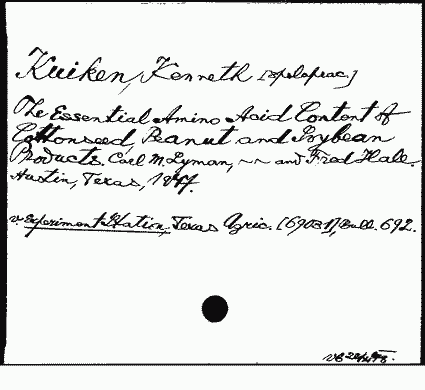 Kuiken, Kenneth
The Essential Amino Acid Content of
Cottonseed, Peanut and Soybean
Products. Carl M. Lyman, ~~ and Fred Hale.
Austin, Texas, 1947.
v. Experiment Station, Texas Agric. [6903 1], Bull. 692.